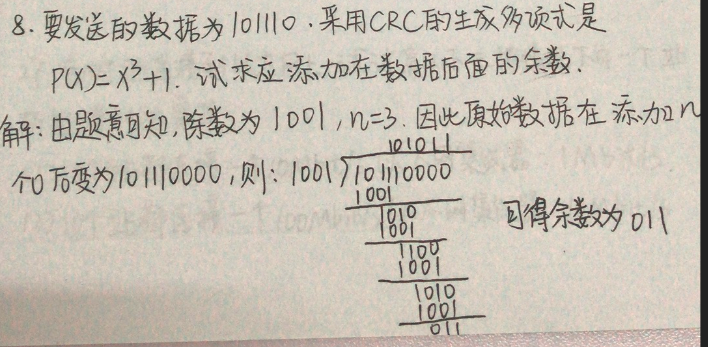 8. 要发送的数据为101110. 采用CRC的生成多项式是
P(X)=X³+1. 试求应添加在数据后面的余数.
解: 由题意可知, 除数为1001, n=3. 因此原始数据在添加n
个0后变为101110000, 则:
101011
1001)101110000
1001
1010
1001
1100
1001
1010
1001
011
可得余数为011